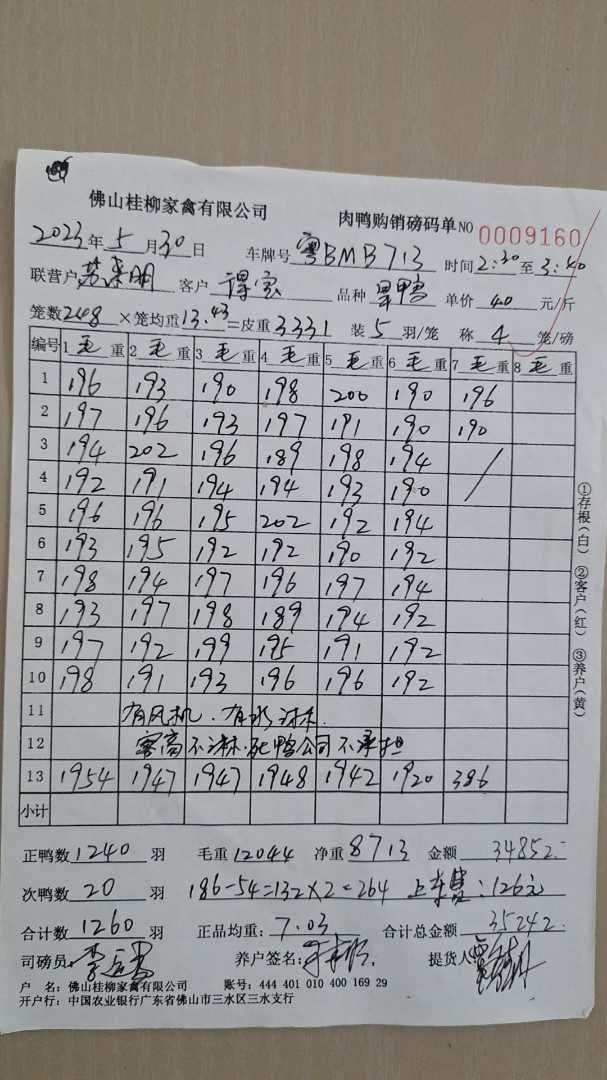 佛山桂柳家禽有限公司 肉鸭购销磅码单 NO 0009160
2023年5月30日 车牌号 粤BMB713 时间 2:30 至 3:40
联营户 客户 品种 旱鸭 单价 4.0 元/斤
笼数 248 ×笼均重 13.43 =皮重 3331 装 5 羽/笼 称 4 笼/磅
编号 1 毛重 2 毛重 3 毛重 4 毛重 5 毛重 6 毛重 7 毛重 8 毛重
1 196 193 190 198 200 190 196
2 197 196 193 197 191 190 190
3 194 202 196 189 198 194
4 192 191 194 194 193 190
5 196 196 195 202 192 194
6 193 195 192 192 190 192
7 198 194 197 196 197 194
8 193 197 198 189 194 192
9 197 192 199 195 191 192
10 198 191 193 196 196 192
11 有风机.有水淋.
12 客高不淋.死鸭公司不承担
13 1954 1947 1947 1948 1942 1920 386
小计
正鸭数 1240 羽 毛重 12044 净重 8713 金额 34852.-
次鸭数 20 羽 186-54=132×2=264 上车费:126元
合计数 1260 羽 正品均重: 7.03 合计总金额 35242.
司磅员: 养户签名: 提货人
户 名: 佛山桂柳家禽有限公司 账号: 444 401 010 400 169 29
开户行: 中国农业银行广东省佛山市三水区三水支行
①存根(白) ②客户(红) ③养户(黄)